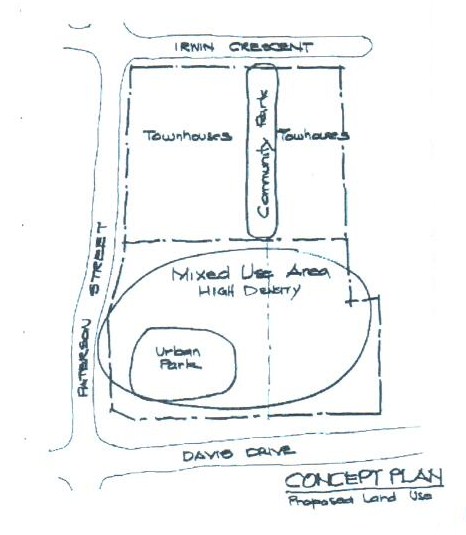 IRWIN CRESCENT
Townhouses
Community Park
Towhouses
PATERSON STREET
Mixed Use Area
HIGH DENSITY
Urban
Park
DAVIS DRIVE
CONCEPT PLAN
Proposed Land Use